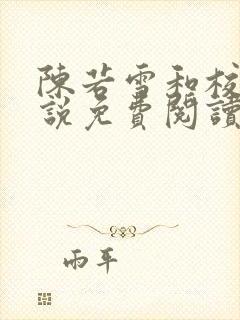 陳若雪和校
說免費閱讀
雨平